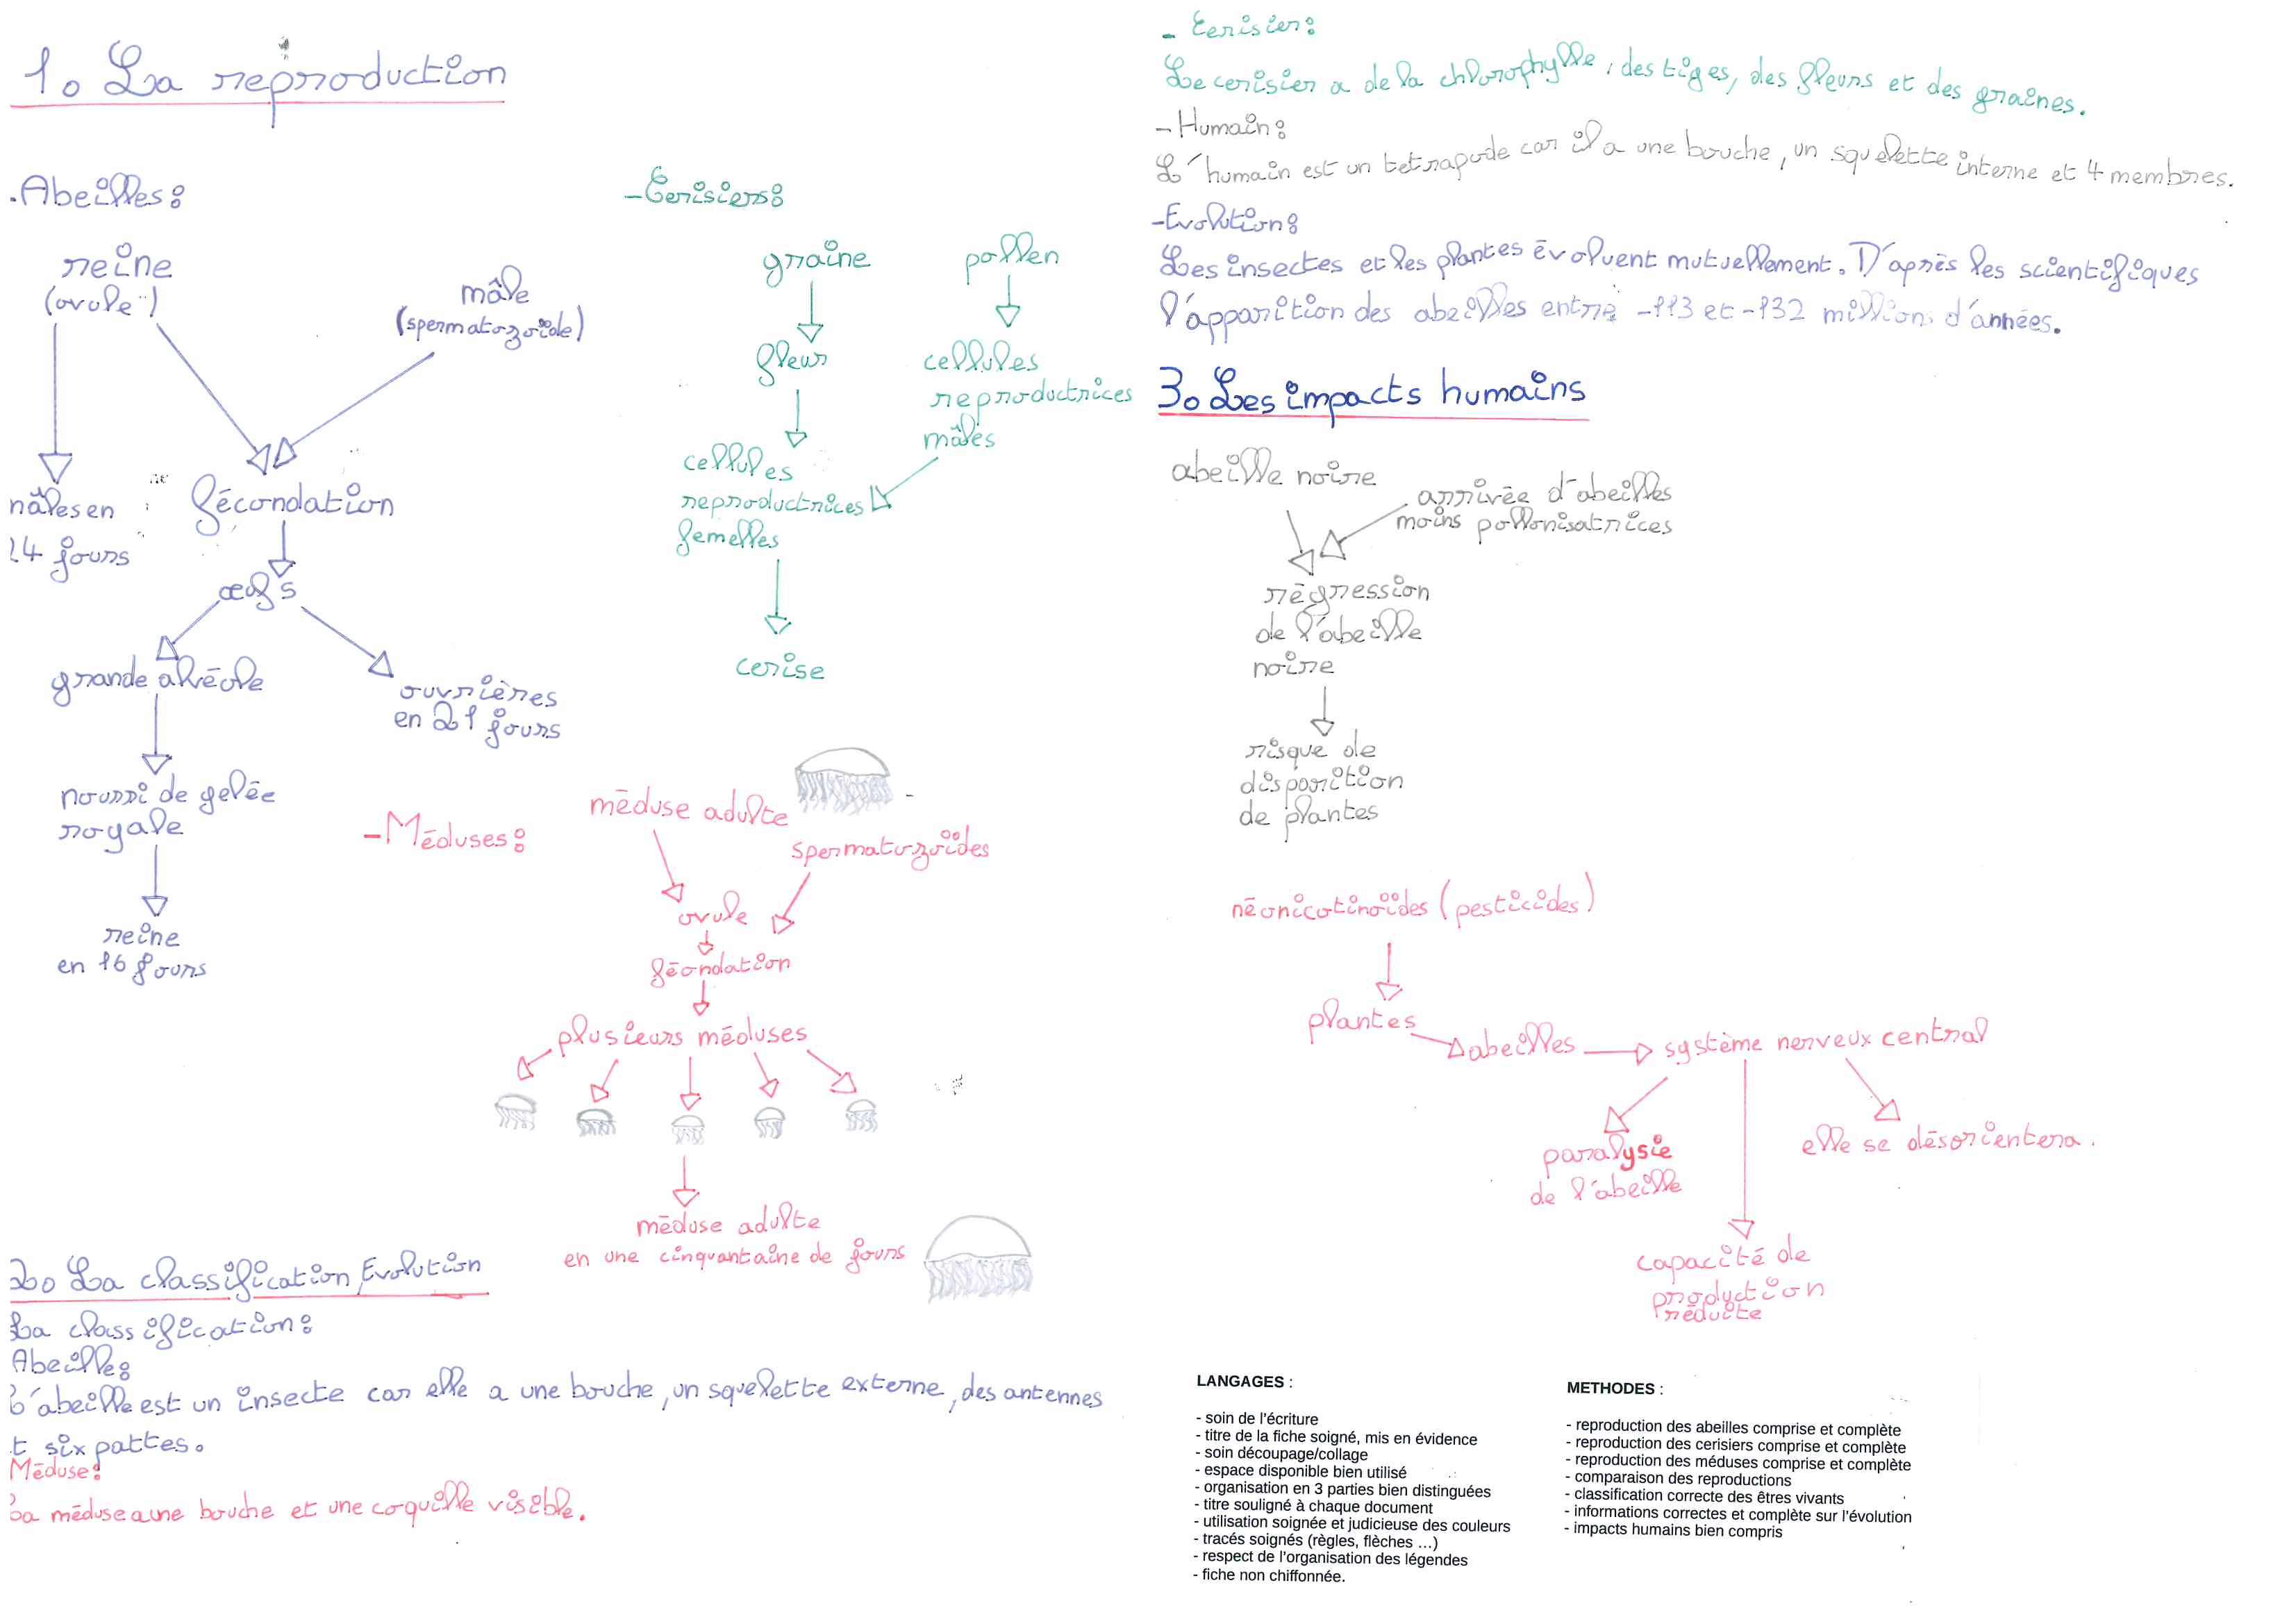 1. La reproduction
.Abeilles:
reine
(ovule)
mâle
(spermatozoïde)
mâles en
24 jours
fécondation
œufs
grande alvéole
ouvrières
en 21 jours
nourri de gelée
royale
reine
en 16 jours
-Cerisiers:
graine
pollen
fleur
cellules
reproductrices
mâles
cellules
reproductrices
femelles
cerise
-Méduses:
méduse adulte
spermatozoïdes
ovule
féondation
plusieurs méduses
méduse adulte
en une cinquantaine de jours
2. La classification, Evolution
La classification:
Abeille:
L'abeille est un insecte car elle a une bouche, un squelette externe, des antennes
t six pattes.
Méduse:
La méduse a une bouche et une coquille visible.
- Cerisier:
Le cerisier a de la chlorophylle, des tiges, des fleurs et des graines.
-Humain:
L'humain est un tetrapode car il a une bouche, un squelette interne et 4 membres.
-Evolution:
Les insectes et les plantes évoluent mutuellement. D'après les scientifiques
l'apparition des abeilles entre -113 et -132 millions d'années.
3. Les impacts humains
abeille noire
arrivée d'abeilles
moins pollonisatrices
régression
de l'abeille
noire
risque de
disparition
de plantes
néonicotinoïdes (pesticides)
plantes
abeilles
système nerveux central
paralysie
de l'abeille
elle se désorientera.
capacité de
production
réduite
LANGAGES :
- soin de l'écriture
- titre de la fiche soigné, mis en évidence
- soin découpage/collage
- espace disponible bien utilisé
- organisation en 3 parties bien distinguées
- titre souligné à chaque document
- utilisation soignée et judicieuse des couleurs
- tracés soignés (règles, flèches ...)
- respect de l'organisation des légendes
- fiche non chiffonnée.
METHODES :
- reproduction des abeilles comprise et complète
- reproduction des cerisiers comprise et complète
- reproduction des méduses comprise et complète
- comparaison des reproductions
- classification correcte des êtres vivants
- informations correctes et complète sur l'évolution
- impacts humains bien compris